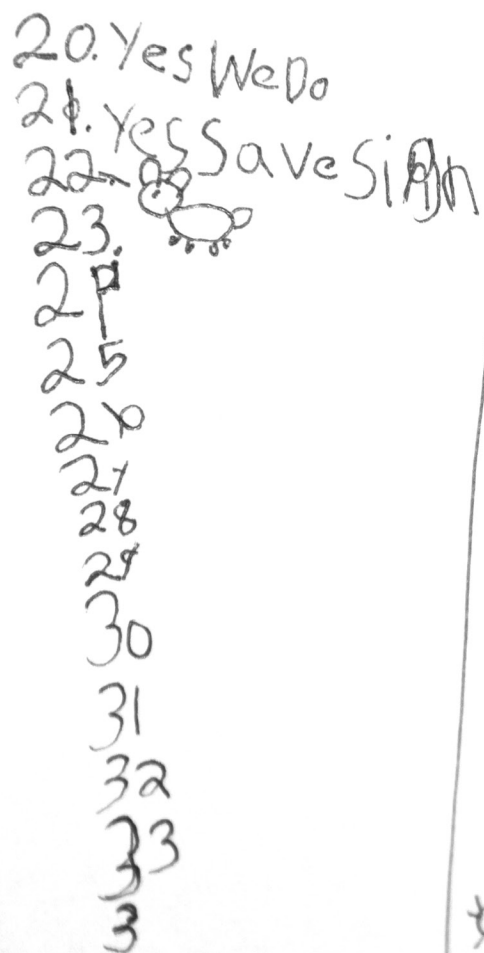 20. Yes We Do
21. Yes Save
22.
23.
2
25
2
27
28
29
30
31
32
33
3
3